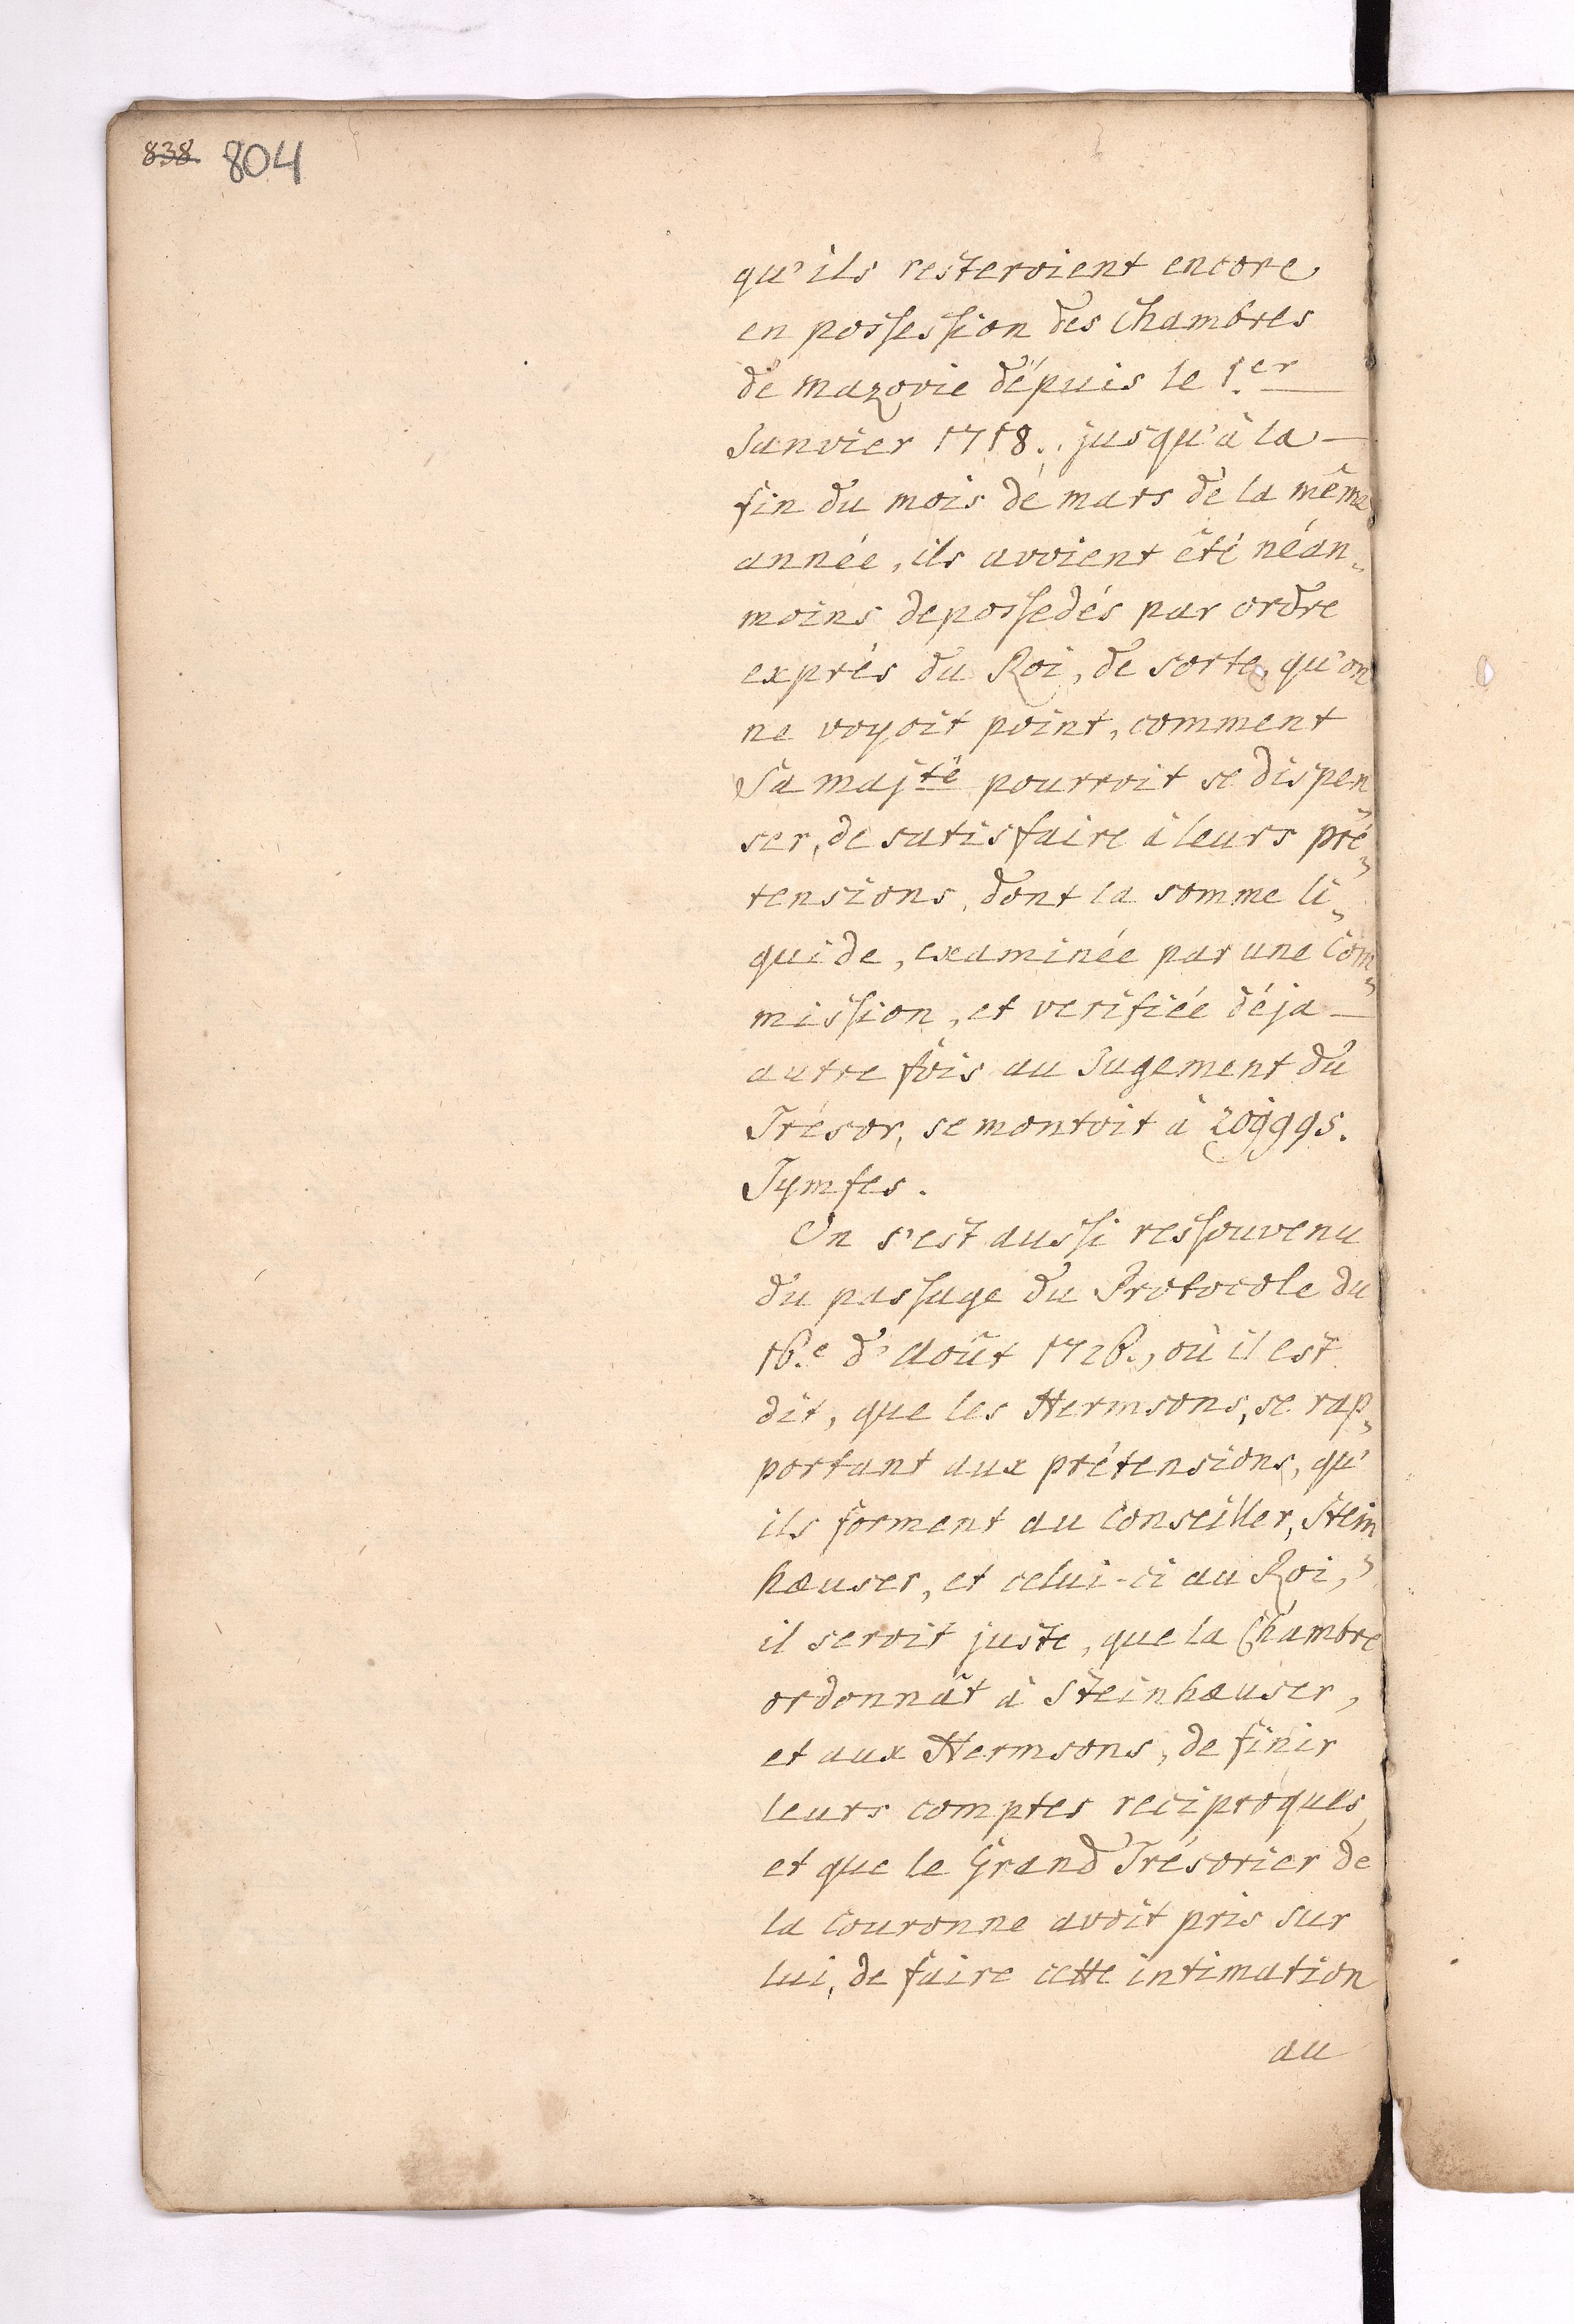 838 804
qu'ils resteroient encore
en possession des Chambres
de mazovie dépuis le 1.er
Janvier 1718. jusqu'à la
fin du mois de mars de la même
année, ils avoient été néan„
moins depossedés par ordre
exprés du Roi, de sorte, qu'on
ne voyoit point, comment
Sa majté pourroit se dispen„
ser, de satisfaire à leurs pré„
tensions, dont la somme li„
quide, examinée par une Com„
mission, et verifiée déja
autre fois au Jugement du
Trésor, se montoit à 209995.
Tymfes.
On s'est aussi ressouvenu
du passage du Protocole du
16.e d'Août 1726., où il est
dit, que les Hermsons, se rap„
portant aux prétensions, qu'
ils forment au Conseiller, Stein„
hæuser, et celui-ci au Roi,
il seroit juste, que la Chambre
ordonnât à Steinhæuser,
et aux Hermsons, de finir
leurs comptes reciproques,
et que le Grand Trésorier de
la Couronne avoit pris sur
lui, de faire cette intimation
au